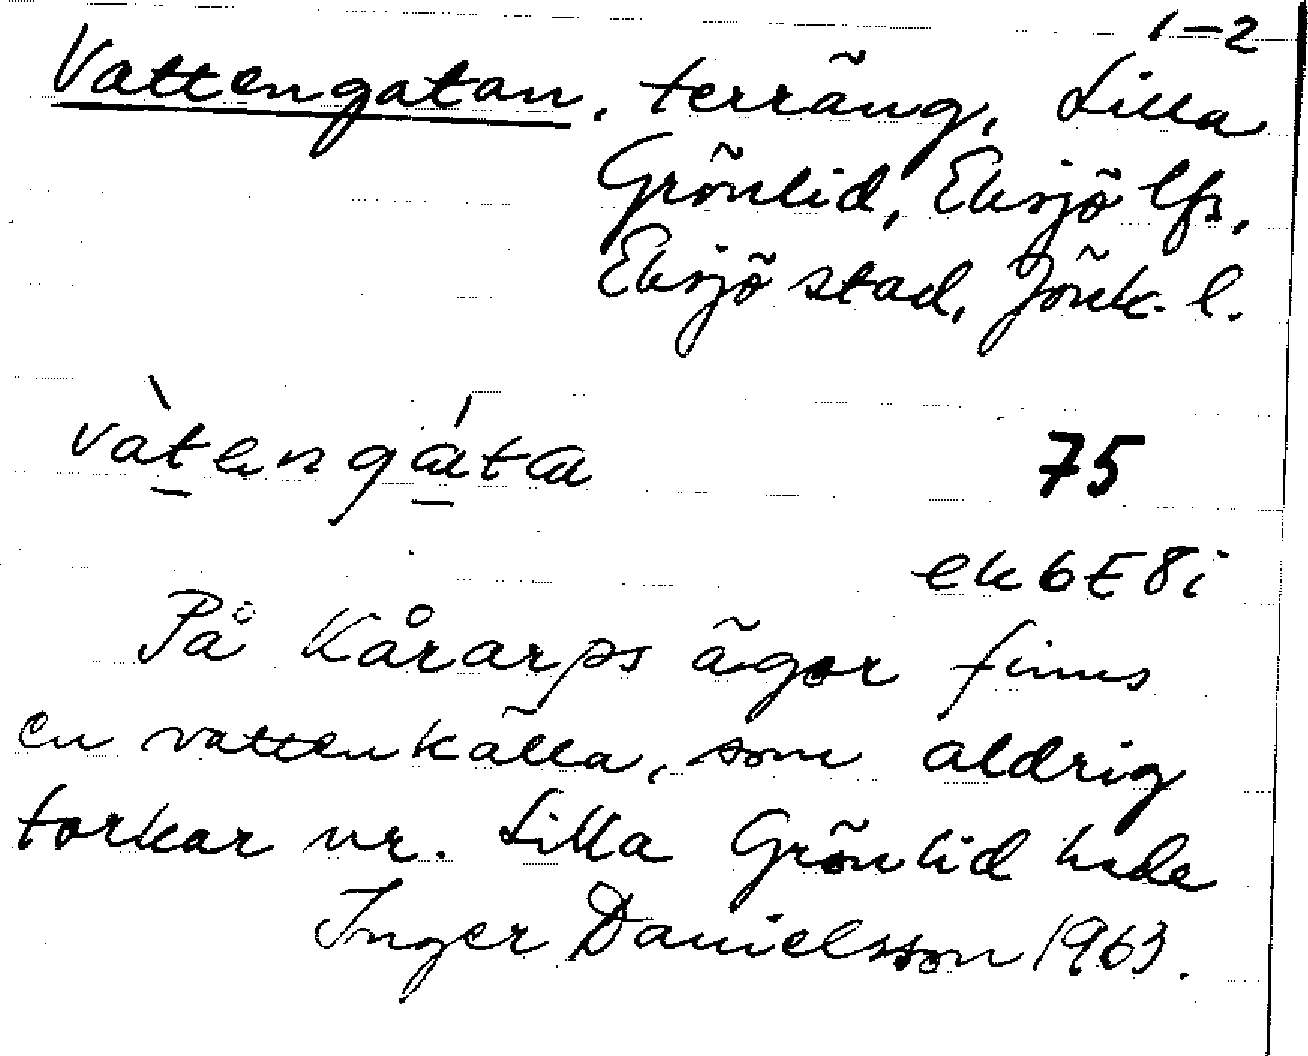 1-2
Vattengatan, terräng, Lilla
Grönlid, Eksjö lfs,
Eksjö stad, Jönk. l.
vàtengáta
75
ek 6E8i
På Kårarps ägor finns
en vattenkälla, som aldrig
torkar ur. Lilla Grönlid hade
Inger Danielsson 1963.